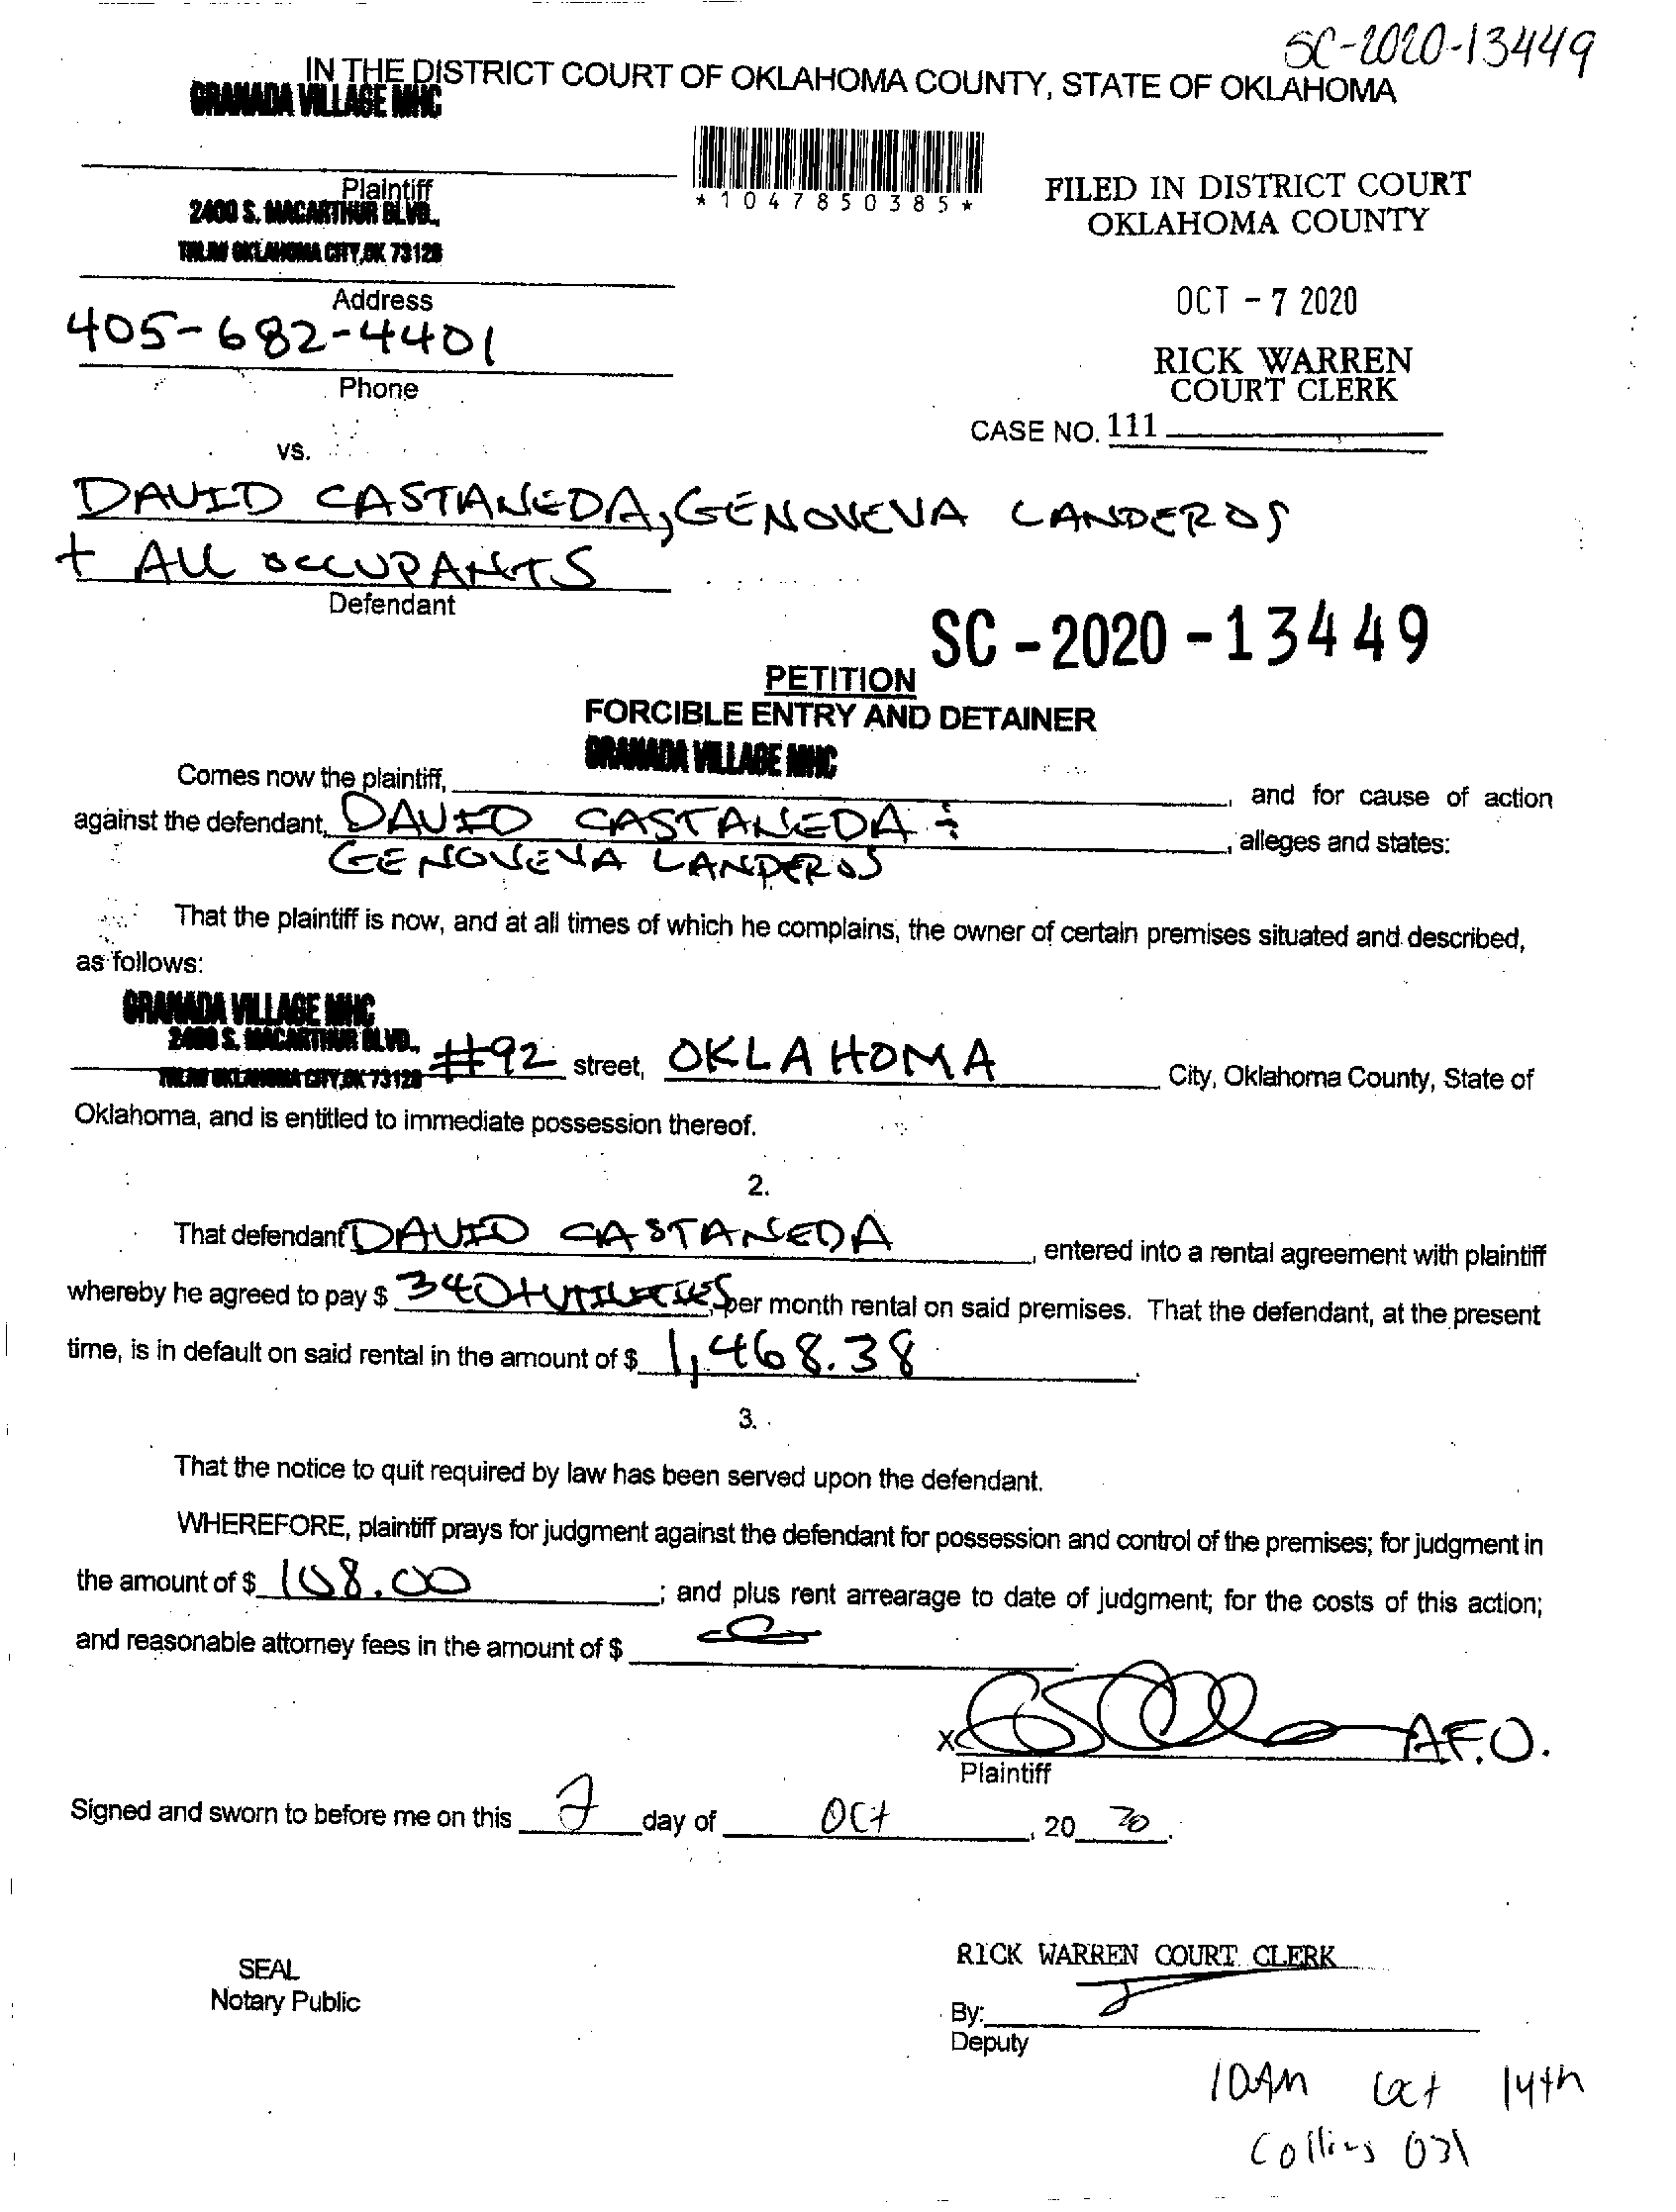 SC-2020-13449
IN THE DISTRICT COURT OF OKLAHOMA COUNTY, STATE OF OKLAHOMA
GRANADA VILLAGE MHC
*1047850385*
Plaintiff
2400 S. MACARTHUR BLVD.,
OKLAHOMA CITY, OK 73128
Address
405-682-4401
Phone
FILED IN DISTRICT COURT
OKLAHOMA COUNTY
OCT - 7 2020
RICK WARREN
COURT CLERK
CASE NO. 111
vs.
DAVID CASTANEDA, GENOVEVA LANDEROS
+ ALL OCCUPANTS
Defendant
SC - 2020 - 13449
PETITION
FORCIBLE ENTRY AND DETAINER
GRANADA VILLAGE MHC
Comes now the plaintiff, , and for cause of action
against the defendant, DAVID CASTANEDA , alleges and states:
GENOVEVA LANDEROS
That the plaintiff is now, and at all times of which he complains, the owner of certain premises situated and described,
as follows:
GRANADA VILLAGE MHC
2400 S. MACARTHUR BLVD.,
OKLAHOMA CITY, OK 73128 #92 street, OKLAHOMA City, Oklahoma County, State of
Oklahoma, and is entitled to immediate possession thereof.
2.
That defendant DAVID CASTANEDA , entered into a rental agreement with plaintiff
whereby he agreed to pay $ 340+UTILITIES, per month rental on said premises. That the defendant, at the present
time, is in default on said rental in the amount of $ 1,468.38
3.
That the notice to quit required by law has been served upon the defendant.
WHEREFORE, plaintiff prays for judgment against the defendant for possession and control of the premises; for judgment in
the amount of $ 108.00 ; and plus rent arrearage to date of judgment; for the costs of this action;
and reasonable attorney fees in the amount of $
X A.F.O.
Plaintiff
Signed and sworn to before me on this 7 day of Oct , 20 20.
SEAL
Notary Public
RICK WARREN COURT CLERK
By:
Deputy
10AM Oct 14th
Collins